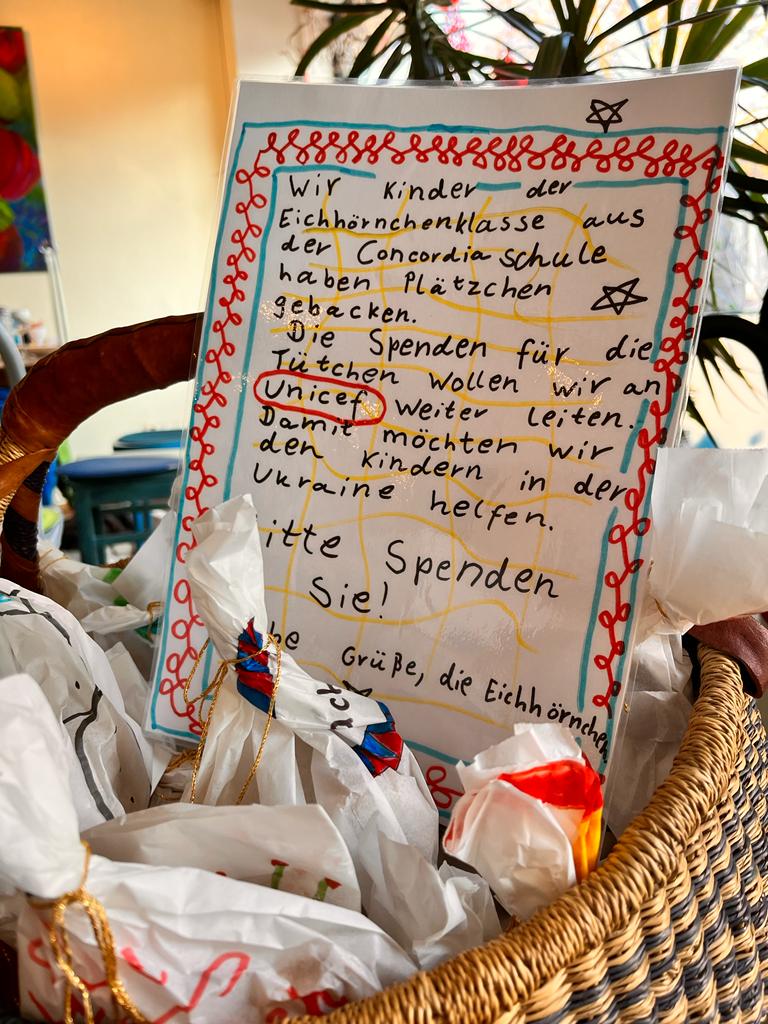 Wir Kinder der
Eichhörnchenklasse aus
der Concordia schule
haben Plätzchen
gebacken.
Die Spenden für die
Tütchen wollen wir an
Unicef weiter leiten.
Damit möchten wir
den Kindern in der
Ukraine helfen.
itte Spenden
Sie!
be Grüße, die Eichhörnchen